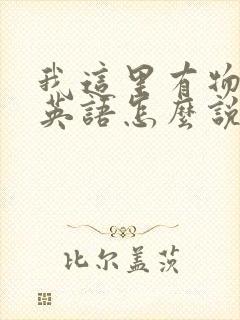 我這里有物
英語怎麼說
比尔盖茨